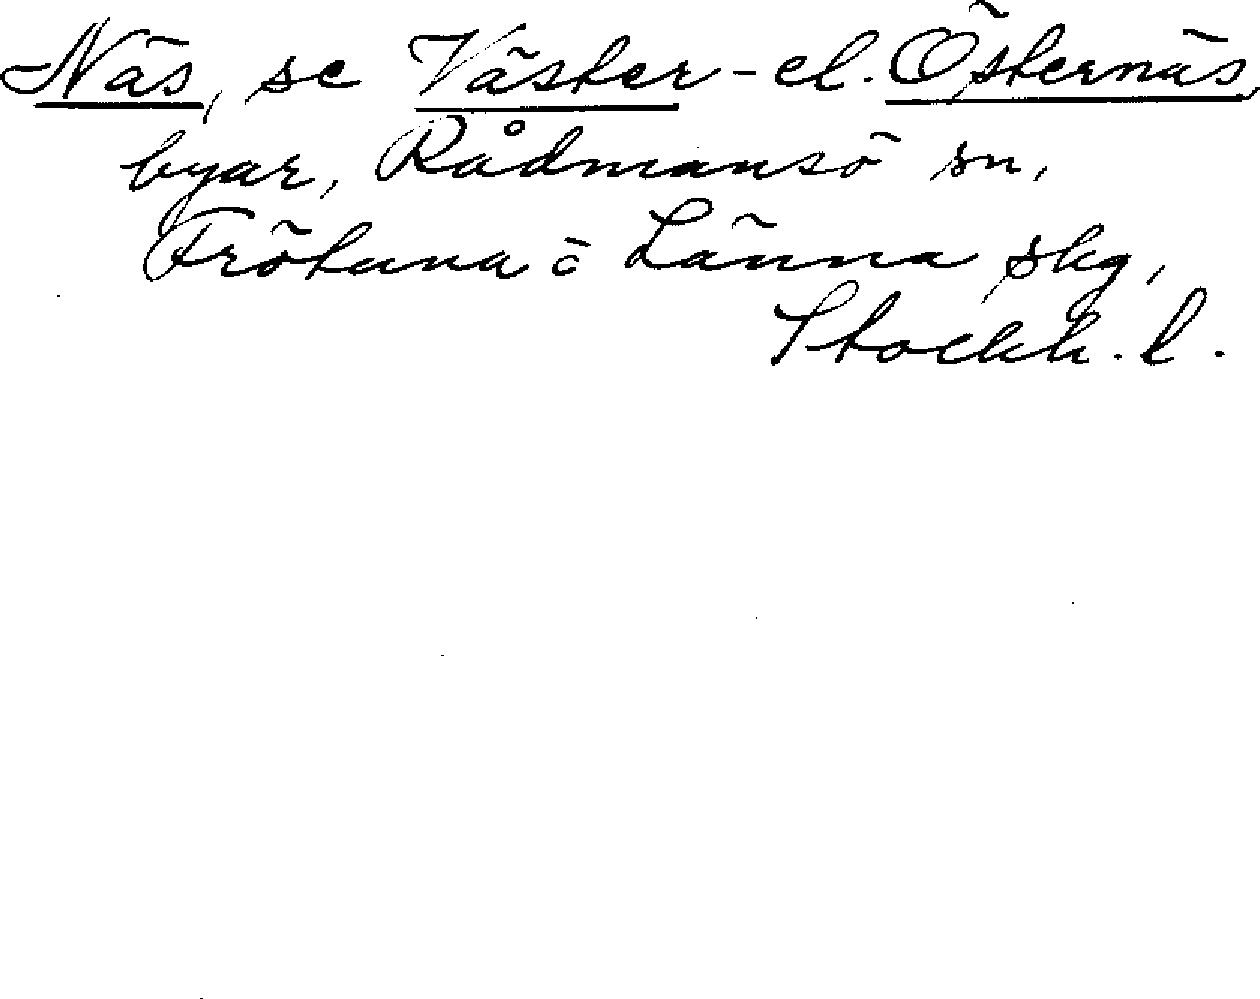 Näs, se Väster- el. Östernäs,
byar, Rådmansö sn,
Frötuna o Länna skg,
Stockh. l.